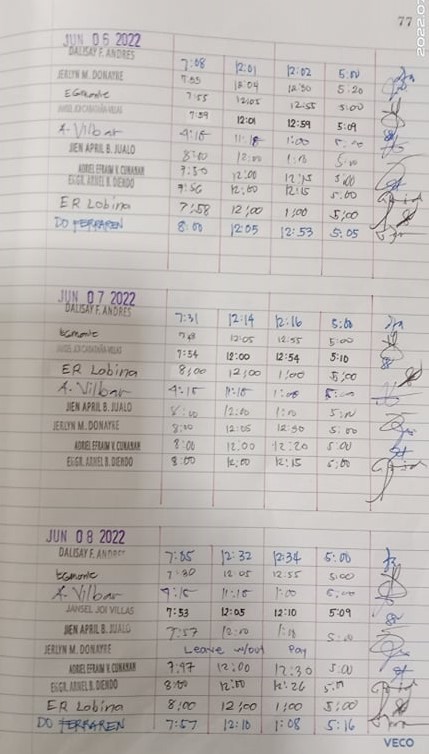 77
JUN 06 2022
DALISAY F. ANDRES 7:08 12:01 12:02 5:00
JERLYN M. DONAYRE 7:55 12:04 12:30 5:20
EGmonte 7:55 12:05 12:55 5:00
7:59 12:01 12:59 5:09
A. Vilbar 9:15 11:18 1:00
JIEN APRIL B. JUALO 8:00 12:00 1:10 5:10
ADRIEL EFRAIM V. CUNANAN 7:50 12:00 12:15 5:00
ENGR. ARNEL B. DIENDO 7:56 12:00 12:15 5:00
ER Labina 7:58 12:00 1:00 5:00
DO FERRAREN 8:00 12:05 12:53 5:05
JUN 07 2022
DALISAY F. ANDRES 7:31 12:14 12:16 5:00
EGmonte 12:05 12:55 5:00
7:54 12:00 12:54 5:10
ER Labina 8:00 12:00 1:00 5:00
A. Vilbar 9:15 11:15 1:00
JIEN APRIL B. JUALO 8:00 12:00 1:10 5:00
JERLYN M. DONAYRE 8:00 12:05 12:30 5:00
ADRIEL EFRAIM V. CUNANAN 8:00 12:00 12:20 5:00
ENGR. ARNEL B. DIENDO 8:00 12:00 12:15 5:00
JUN 08 2022
DALISAY F. ANDRES 7:05 12:32 12:34 5:00
EGmonte 7:30 12:05 12:55 5:00
A. Vilbar 9:15 11:15 1:00
JANSEL JOI VILLAS 7:53 12:05 12:10 5:09
JIEN APRIL B. JUALO 7:57 12:00 1:10 5:00
JERLYN M. DONAYRE Leave w/out Pay
ADRIEL EFRAIM V. CUNANAN 7:47 12:00 12:30 5:00
ENGR. ARNEL B. DIENDO 8:00 12:00 12:26 5:00
ER Labina 8:00 12:00 1:00 5:00
DO FERRAREN 7:57 12:10 1:08 5:16
VECO